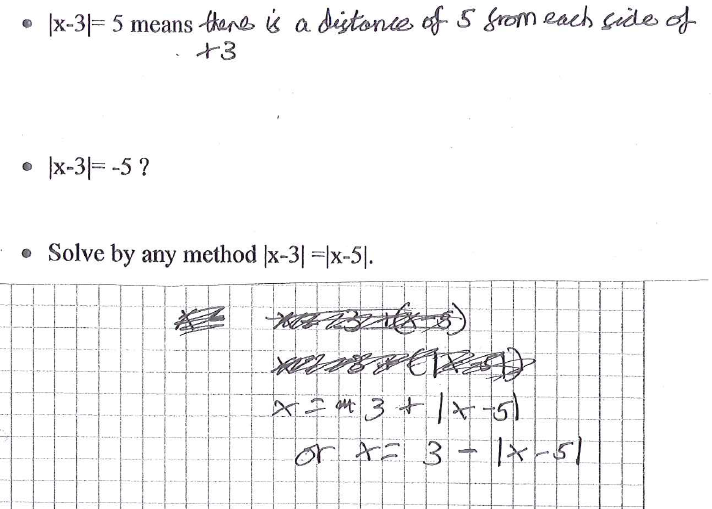 • |x-3|= 5 means there is a distance of 5 from each side of
+3
• |x-3|= -5 ?
• Solve by any method |x-3| =|x-5|.
x = 3 + |x-5|
or x = 3 - |x-5|